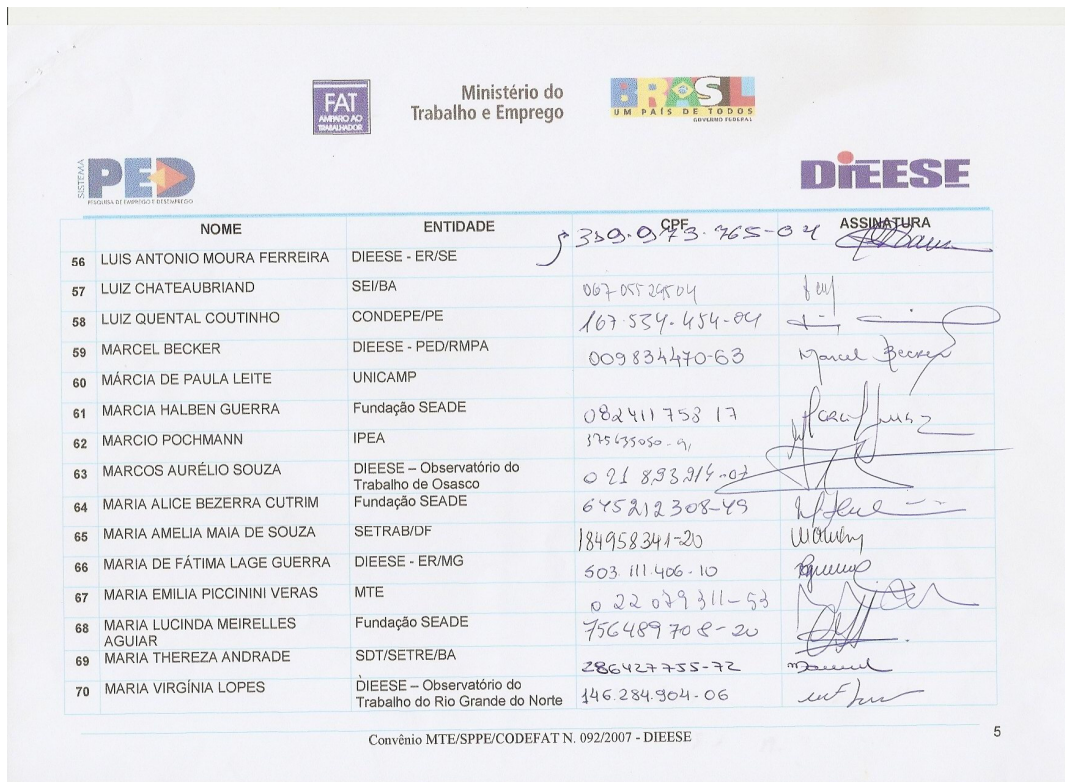 FAT
AMPARO AO
TRABALHADOR
Ministério do
Trabalho e Emprego
BRASIL
UM PAÍS DE TODOS
GOVERNO FEDERAL
SISTEMA
PED
PESQUISA DE EMPREGO E DESEMPREGO
DIEESE
NOME ENTIDADE CPF ASSINATURA
56 LUIS ANTONIO MOURA FERREIRA DIEESE - ER/SE 339.973.765-04
57 LUIZ CHATEAUBRIAND SEI/BA 067 055 295 04
58 LUIZ QUENTAL COUTINHO CONDEPE/PE 167.534.454-04
59 MARCEL BECKER DIEESE - PED/RMPA 009834470-63 Marcel Becker
60 MÁRCIA DE PAULA LEITE UNICAMP
61 MARCIA HALBEN GUERRA Fundação SEADE 082411753 17
62 MARCIO POCHMANN IPEA
63 MARCOS AURÉLIO SOUZA DIEESE – Observatório do
Trabalho de Osasco 021 893 914-07
64 MARIA ALICE BEZERRA CUTRIM Fundação SEADE 645212308-49
65 MARIA AMELIA MAIA DE SOUZA SETRAB/DF 184958341-20
66 MARIA DE FÁTIMA LAGE GUERRA DIEESE - ER/MG 503.111.406-10
67 MARIA EMILIA PICCININI VERAS MTE 022 079 311-53
68 MARIA LUCINDA MEIRELLES
AGUIAR Fundação SEADE 756489708-20
69 MARIA THEREZA ANDRADE SDT/SETRE/BA 286427755-72
70 MARIA VIRGÍNIA LOPES DIEESE – Observatório do
Trabalho do Rio Grande do Norte 146.284.904-06
Convênio MTE/SPPE/CODEFAT N. 092/2007 - DIEESE
5